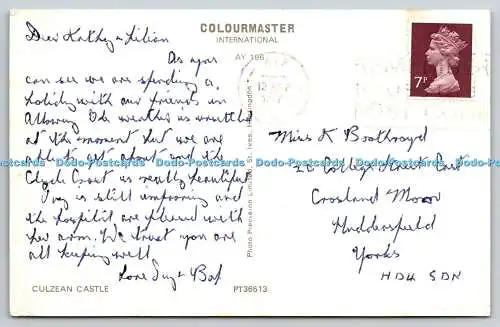 Dear Kathy & Lilian
As you
can see we are spending a
holiday with our friends in
Alloway The weather is unsettled
at the moment but we are
able to get about and the
Clyde Coast is really beautiful
Ivy is still improving and
the hospital are pleased with
her arm. We trust you are
all keeping well
Love Ivy & Bob
CULZEAN CASTLE
COLOURMASTER
INTERNATIONAL
AY 196
Photo Precision Limited, St. Ives, Huntingdon
PT36513
7P
Miss K Boothroyd
22 College Street East
Crosland Moor
Huddersfield
Yorks
HD4 5DN
Dodo-Postcards Dodo-Postcards Dodo-Postcards Dodo-Postcards Dodo-Postcards